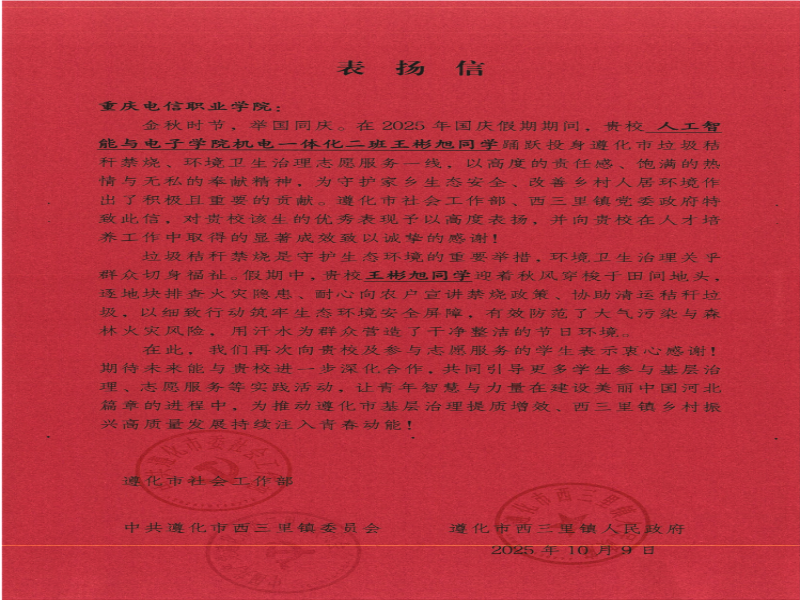 表扬信
重庆电信职业学院：
金秋时节，举国同庆。在2025年国庆假期期间，贵校 人工智
能与电子学院机电一体化二班王彬旭同学踊跃投身遵化市垃圾秸
秆禁烧、环境卫生治理志愿服务一线，以高度的责任感、饱满的热
情与无私的奉献精神，为守护家乡生态安全、改善乡村人居环境作
出了积极且重要的贡献。遵化市社会工作部、西三里镇党委政府特
致此信，对贵校该生的优秀表现予以高度表扬，并向贵校在人才培
养工作中取得的显著成效致以诚挚的感谢！
垃圾秸秆禁烧是守护生态环境的重要举措，环境卫生治理关乎
群众切身福祉。假期中，贵校王彬旭同学迎着秋风穿梭于田间地头，
逐地块排查火灾隐患、耐心向农户宣讲禁烧政策、协助清运秸秆垃
圾，以细致行动筑牢生态环境安全屏障，有效防范了大气污染与森
林火灾风险，用汗水为群众营造了干净整洁的节日环境。
在此，我们再次向贵校及参与志愿服务的学生表示衷心感谢！
期待未来能与贵校进一步深化合作，共同引导更多学生参与基层治
理、志愿服务等实践活动，让青年智慧与力量在建设美丽中国河北
篇章的进程中，为推动遵化市基层治理提质增效、西三里镇乡村振
兴高质量发展持续注入青春动能！
遵化市社会工作部
中共遵化市西三里镇委员会 遵化市西三里镇人民政府
2025 年 10 月 9 日